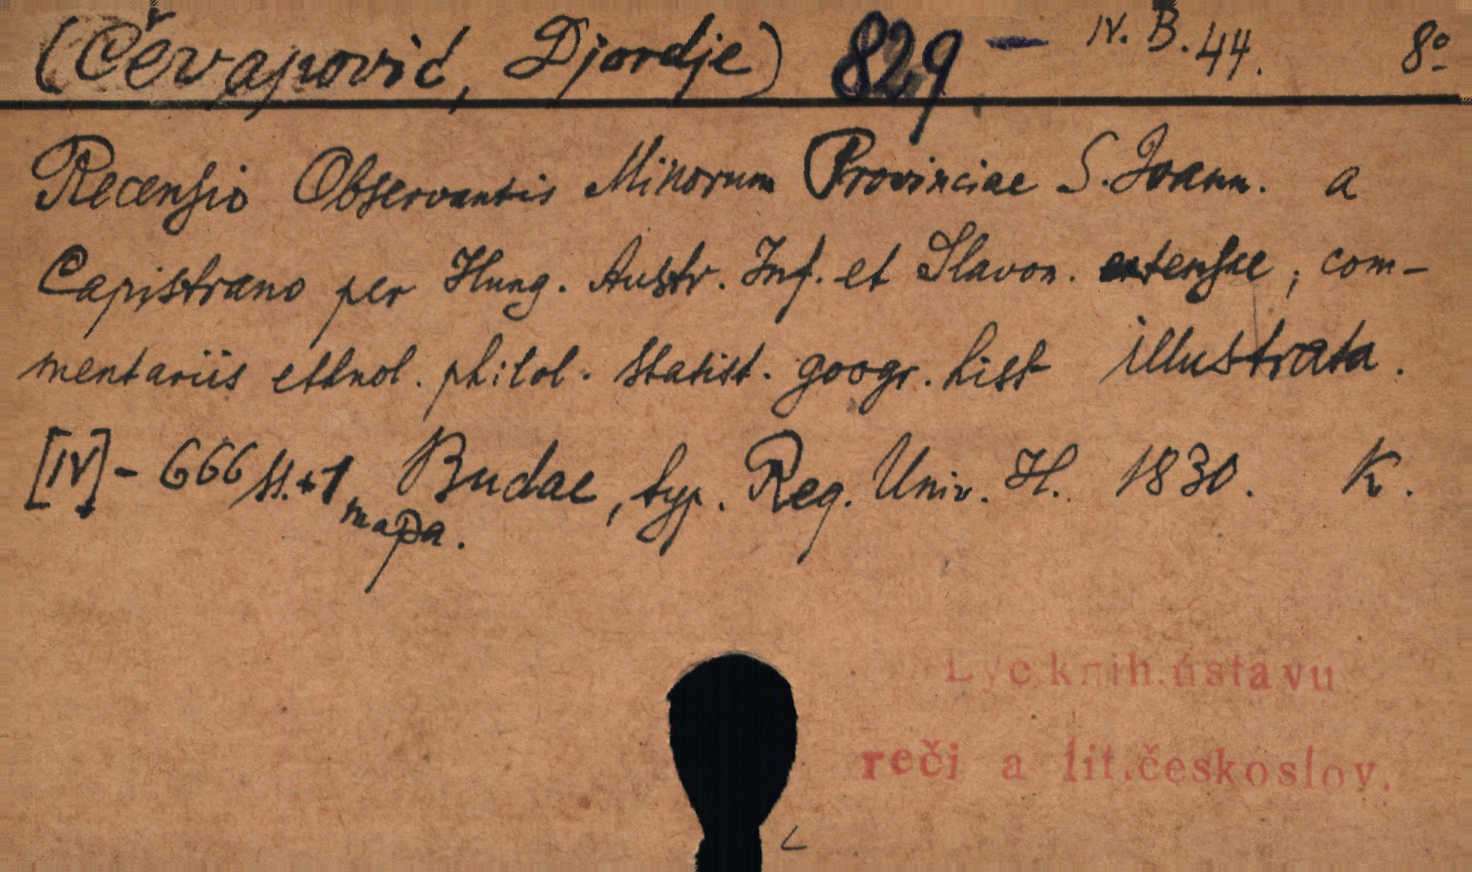 (Čevapović, Djordje) 829 - IV. B. 44. 8º
Recensio Observantis Minorum Provinciae S. Joann. a
Capistrano per Hung. Austr. Inf. et Slavon. extensae; com-
mentariis ethnol. philol. statist. geogr. hist illustrata.
[IV] - 666 st. + 1 mapa. Budae, typ. Reg. Univ. H. 1830. K.
Lyc knih. ústavu
reči a lit. českoslov.